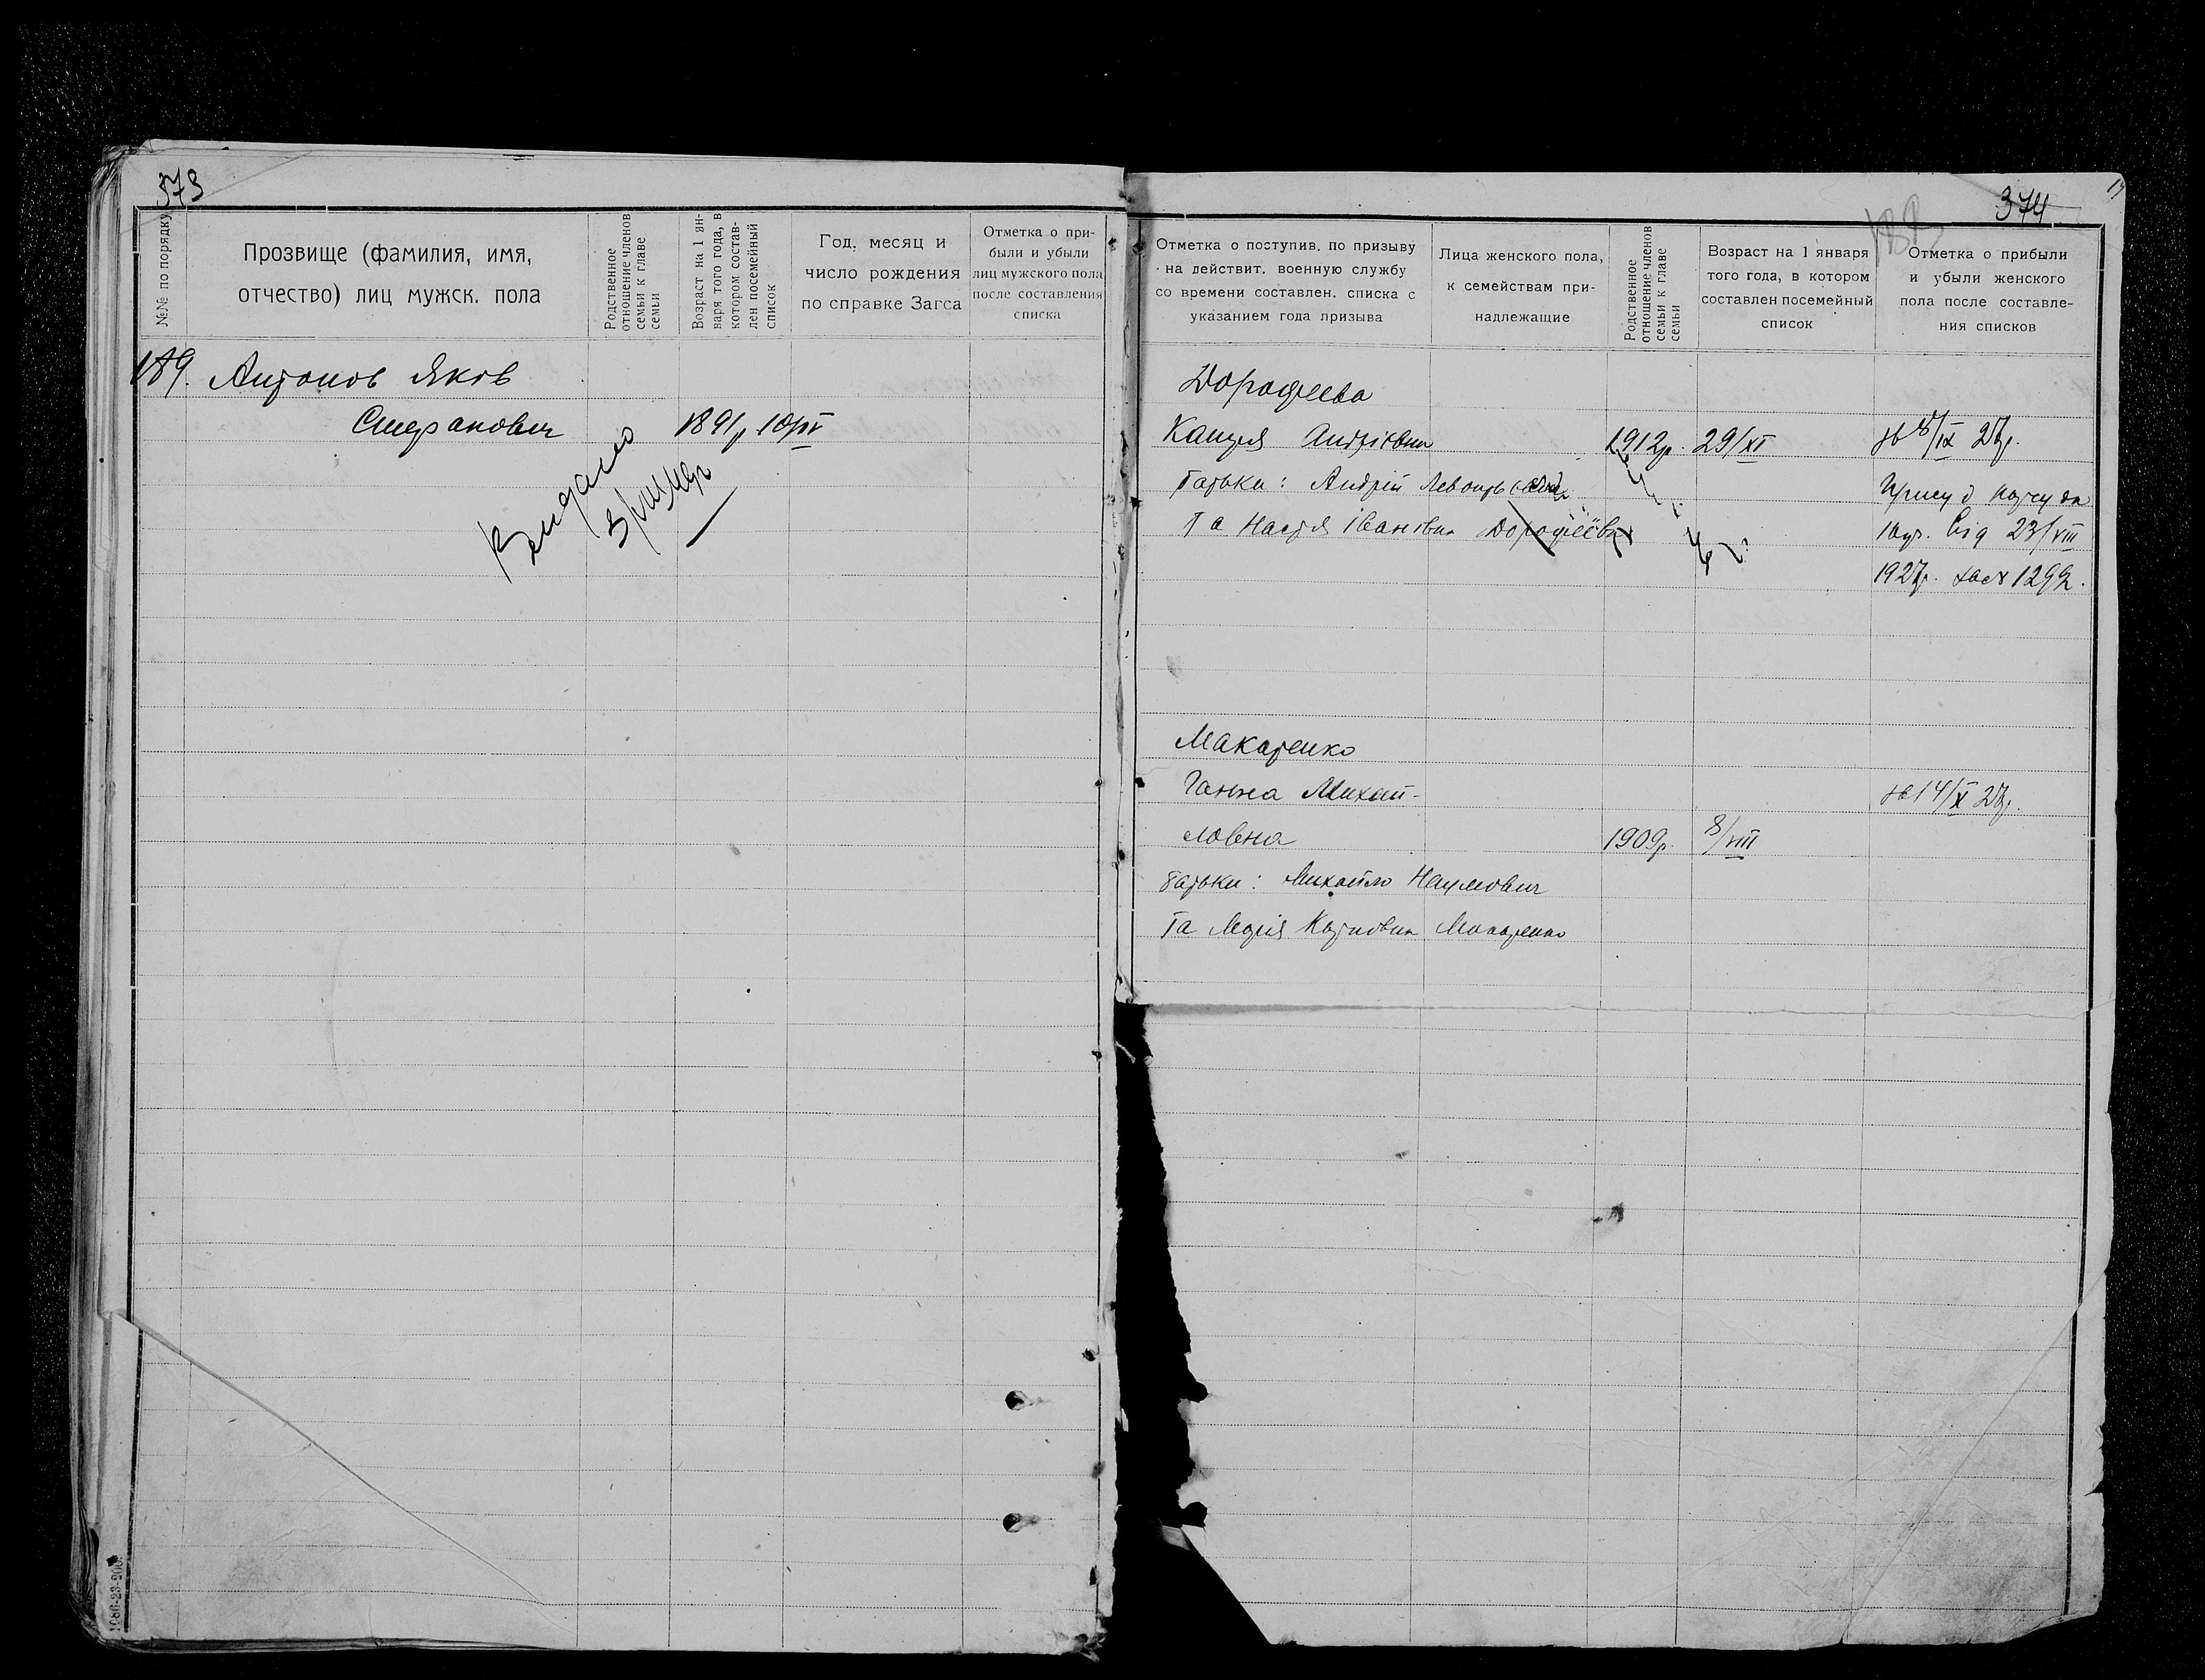 373
№№ по порядку
Прозвище (фамилия, имя,
отчество) лиц мужск. пола
Родственное
отношение членов
семьи к главе
семьи
Возраст на 1 ян-
варя того года, в
котором состав-
лен посемейный
список
Год, месяц и
число рождения
по справке Загса
Отметка о при-
были и убыли
лиц мужского пола
после составления
списка
189. Антонов Яков
Стефанович 1891р. 10/IV
Видано
374
188
Отметка о поступив. по призыву
на действит. военную службу
со времени составлен. списка с
указанием года призыва
Лица женского пола,
к семействам при-
надлежащие
Родственное
отношение членов
семьи к главе
семьи
Возраст на 1 января
того года, в котором
составлен посемейный
список
Отметка о прибыли
и убыли женского
пола после составле-
ния списков
Дорофеева
Андріївна 1912р. 29/XI 8/IX 27р.
батьки: Андрій
та Настя Івановна Дорофеєва від 23/VIII
1927р. 1299.
Макаренко
Ганна Михай- 14/X 27р.
ловна 1909р. 8/VIII
батьки: Михайло Наумович
та Марія Карповна Макаренко